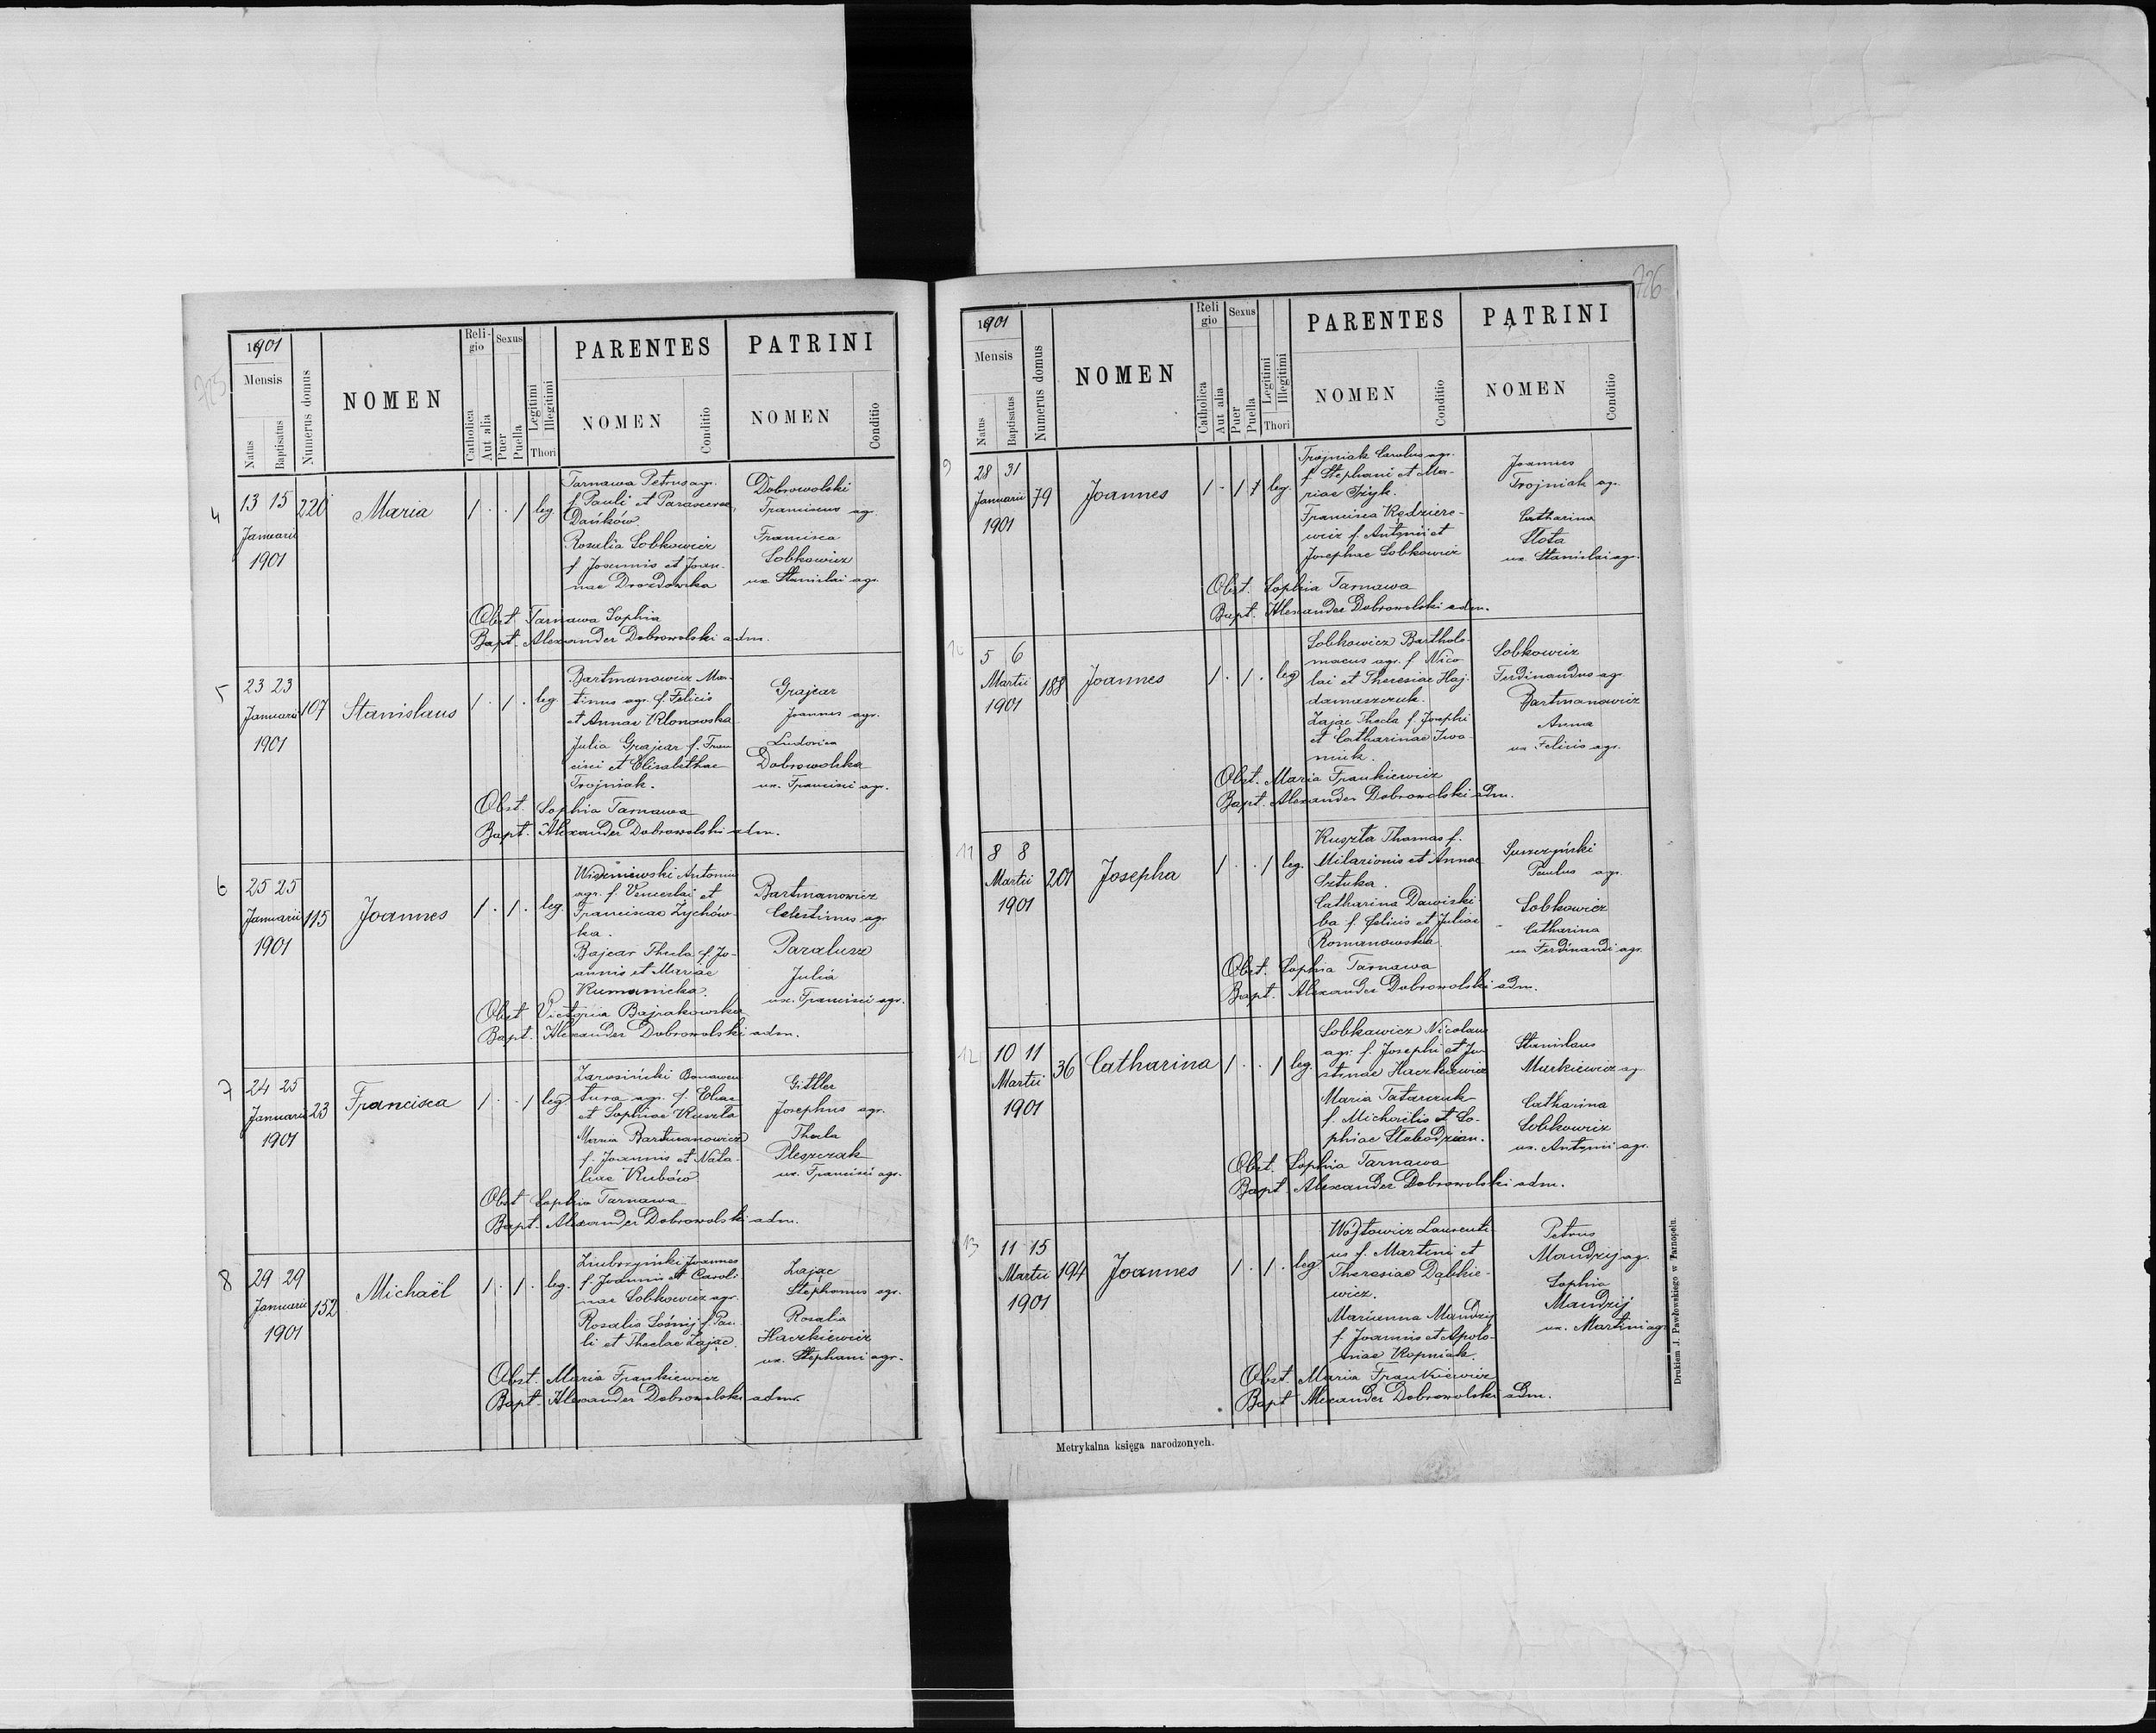 725
1901
Mensis
Natus
Baptisatus
Numerus domus
NOMEN
Reli-
gio
Catholica
Aut alia
Sexus
Puer
Puella
Legitimi
Illegitimi
Thori
PARENTES
NOMEN
Conditio
PATRINI
NOMEN
Conditio
4
13 15
Januarii
1901
220
Maria
1 . . 1 leg.
Tarnawa Petrus agr.
f. Pauli et Parascevae
Dańków.
Rosalia Sobkowicz
f. Joannis et Joan-
nae Drozdowska
Dobrowolski
Franciscus agr.
Francisca
Sobkowicz
ux. Stanislai agr.
Obst. Tarnawa Sophia
Bapt. Alexander Dobrowolski adm.
5
23 23
Januarii
1901
107
Stanislaus
1 . 1 . leg.
Bartmanowicz Mar-
tinus agr. f. Felicis
et Annae Klonowska
Julia Grajcar f. Fran-
cisci et Elisabethae
Trojniak.
Grajcar
Joannes agr.
Ludovica
Dobrowolska
ux. Francisci agr.
Obst. Sophia Tarnawa
Bapt. Alexander Dobrowolski adm.
6
25 25
Januarii
1901
115
Joannes
1 . 1 . leg.
Wiśniewski Antonius
agr. f. Venceslai et
Franciscae Zychów-
ka.
Bajcar Thecla f. Jo-
annis et Mariae
Kumanicka.
Bartmanowicz
Celestinus agr.
Paralusz
Julia
ux. Francisci agr.
Obst. Victoria Bajrakowska
Bapt. Alexander Dobrowolski adm.
7
24 25
Januarii
1901
23
Francisca
1 . . 1 leg
Zarosiński Bonawen-
tura agr. f. Eliae
et Sophiae Kuszla
Maria Bartmanowicz
f. Joannis et Nata-
liae Kubów
Gittler
Josephus agr.
Thecla
Pleszczak
ux. Francisci agr.
Obst. Sophia Tarnawa
Bapt. Alexander Dobrowolski adm.
8
29 29
Januarii
1901
152
Michaël
1 . 1 . leg.
Joannes
f. Joannis et Caroli-
nae Sobkowicz agr.
Rosalia Łośnij f. Pau-
li et Theclae Zając.
Zając
Stephanus agr.
Rosalia
Haczkiewicz
ux. Stephani agr.
Obst. Maria Frankiewicz
Bapt. Alexander Dobrowolski adm.
726
1901
Mensis
Natus
Baptisatus
Numerus domus
NOMEN
Reli
gio
Catholica
Aut alia
Sexus
Puer
Puella
Legitimi
Illegitimi
Thori
PARENTES
NOMEN
Conditio
PATRINI
NOMEN
Conditio
9
28 31
Januarii
1901
79
Joannes
1 . 1 leg.
Trojniak Carolus agr.
f. Stephani et Ma-
riae
Francisca Kędziere-
wicz f. Antonii et
Josephae Sobkowicz
Joannes
Trojniak agr.
Catharina
Słota
ux. Stanislai agr.
Obst. Sophia Tarnawa
Bapt. Alexander Dobrowolski adm.
10
5 6
Martii
1901
188
Joannes
1 . 1 . leg
Sobkowicz Bartholo-
maeus agr. f. Nico-
lai et Theresiae Haj-
damaszczuk.
Zając Thecla f. Josephi
et Catharinae Iwa-
niuk.
Sobkowicz
Ferdinandus agr.
Bartmanowicz
Anna
ux Felicis agr.
Obst. Maria Frankiewicz
Bapt. Alexander Dobrowolski adm.
11
8 8
Martii
1901
201
Josepha
1 . . 1 leg.
Kuszla Thomas f.
Milarionis et Annae
Sztuka.
Catharina Dawiski-
ba f. Felicis et Juliae
Romanowska
Paulus agr.
Sobkowicz
Catharina
ux Ferdinandi agr.
Obst. Sophia Tarnawa
Bapt. Alexander Dobrowolski adm.
12
10 11
Martii
1901
36
Catharina
1 . . 1 leg.
Sobkowicz Nicolaus
agr. f. Josephi et Ju-
stinae Haczkiewicz
Maria Tatarczuk
f. Michaëlis et So-
phiae Słobodzian.
Stanislaus
Murkiewicz agr.
Catharina
Sobkowicz
ux. Antonii agr.
Obst. Sophia Tarnawa
Bapt. Alexander Dobrowolski adm.
13
11 15
Martii
1901
194
Joannes
1 . 1 . leg
Wójtowicz Laurenti-
us f. Martini et
Theresiae Dąbkie-
wicz.
Marianna Mandzij
f. Joannis et Apolo-
niae Kopniak.
Petrus
Mandzij agr.
Sophia
Mandzij
ux. Martini agr
Obst. Maria Frankiewicz
Bapt. Alexander Dobrowolski adm.
Metrykalna księga narodzonych.
Drukiem J. Pawłowskiego w Tarnopolu.